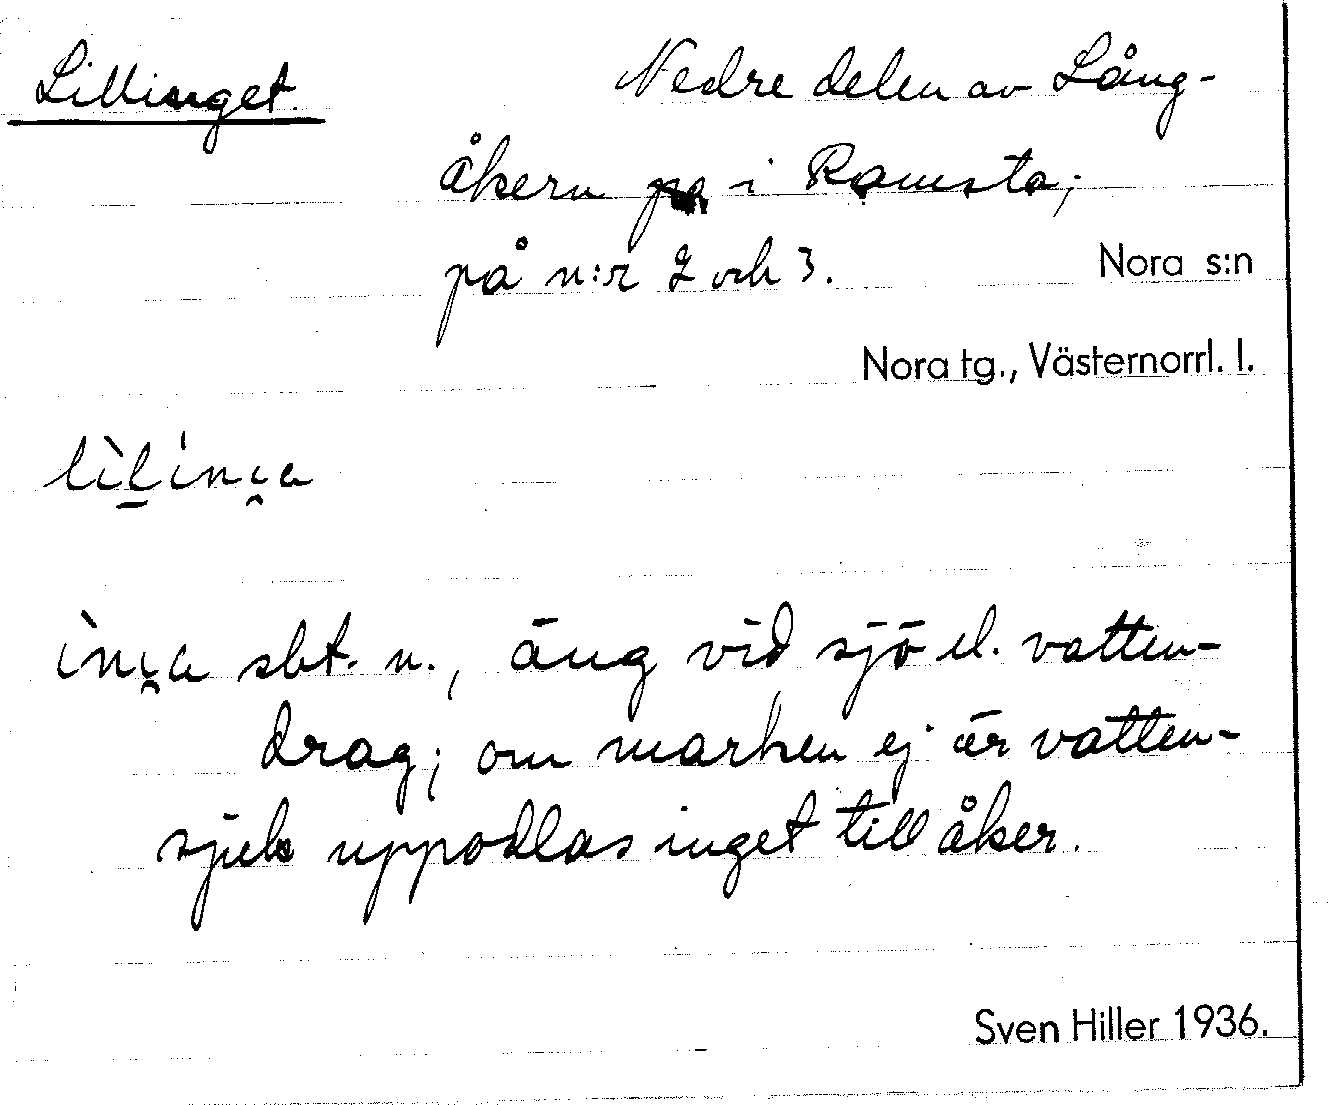 Lillinget. Nedre delen av Lång-
åkern i Ramsta;
på n:r 2 och 3. Nora s:n
Nora tg., Västernorrl. l.
sbt. n., äng vid sjö el. vatten-
drag; om marken ej är vatten-
sjuk uppodlas inget till åker.
Sven Hiller 1936.